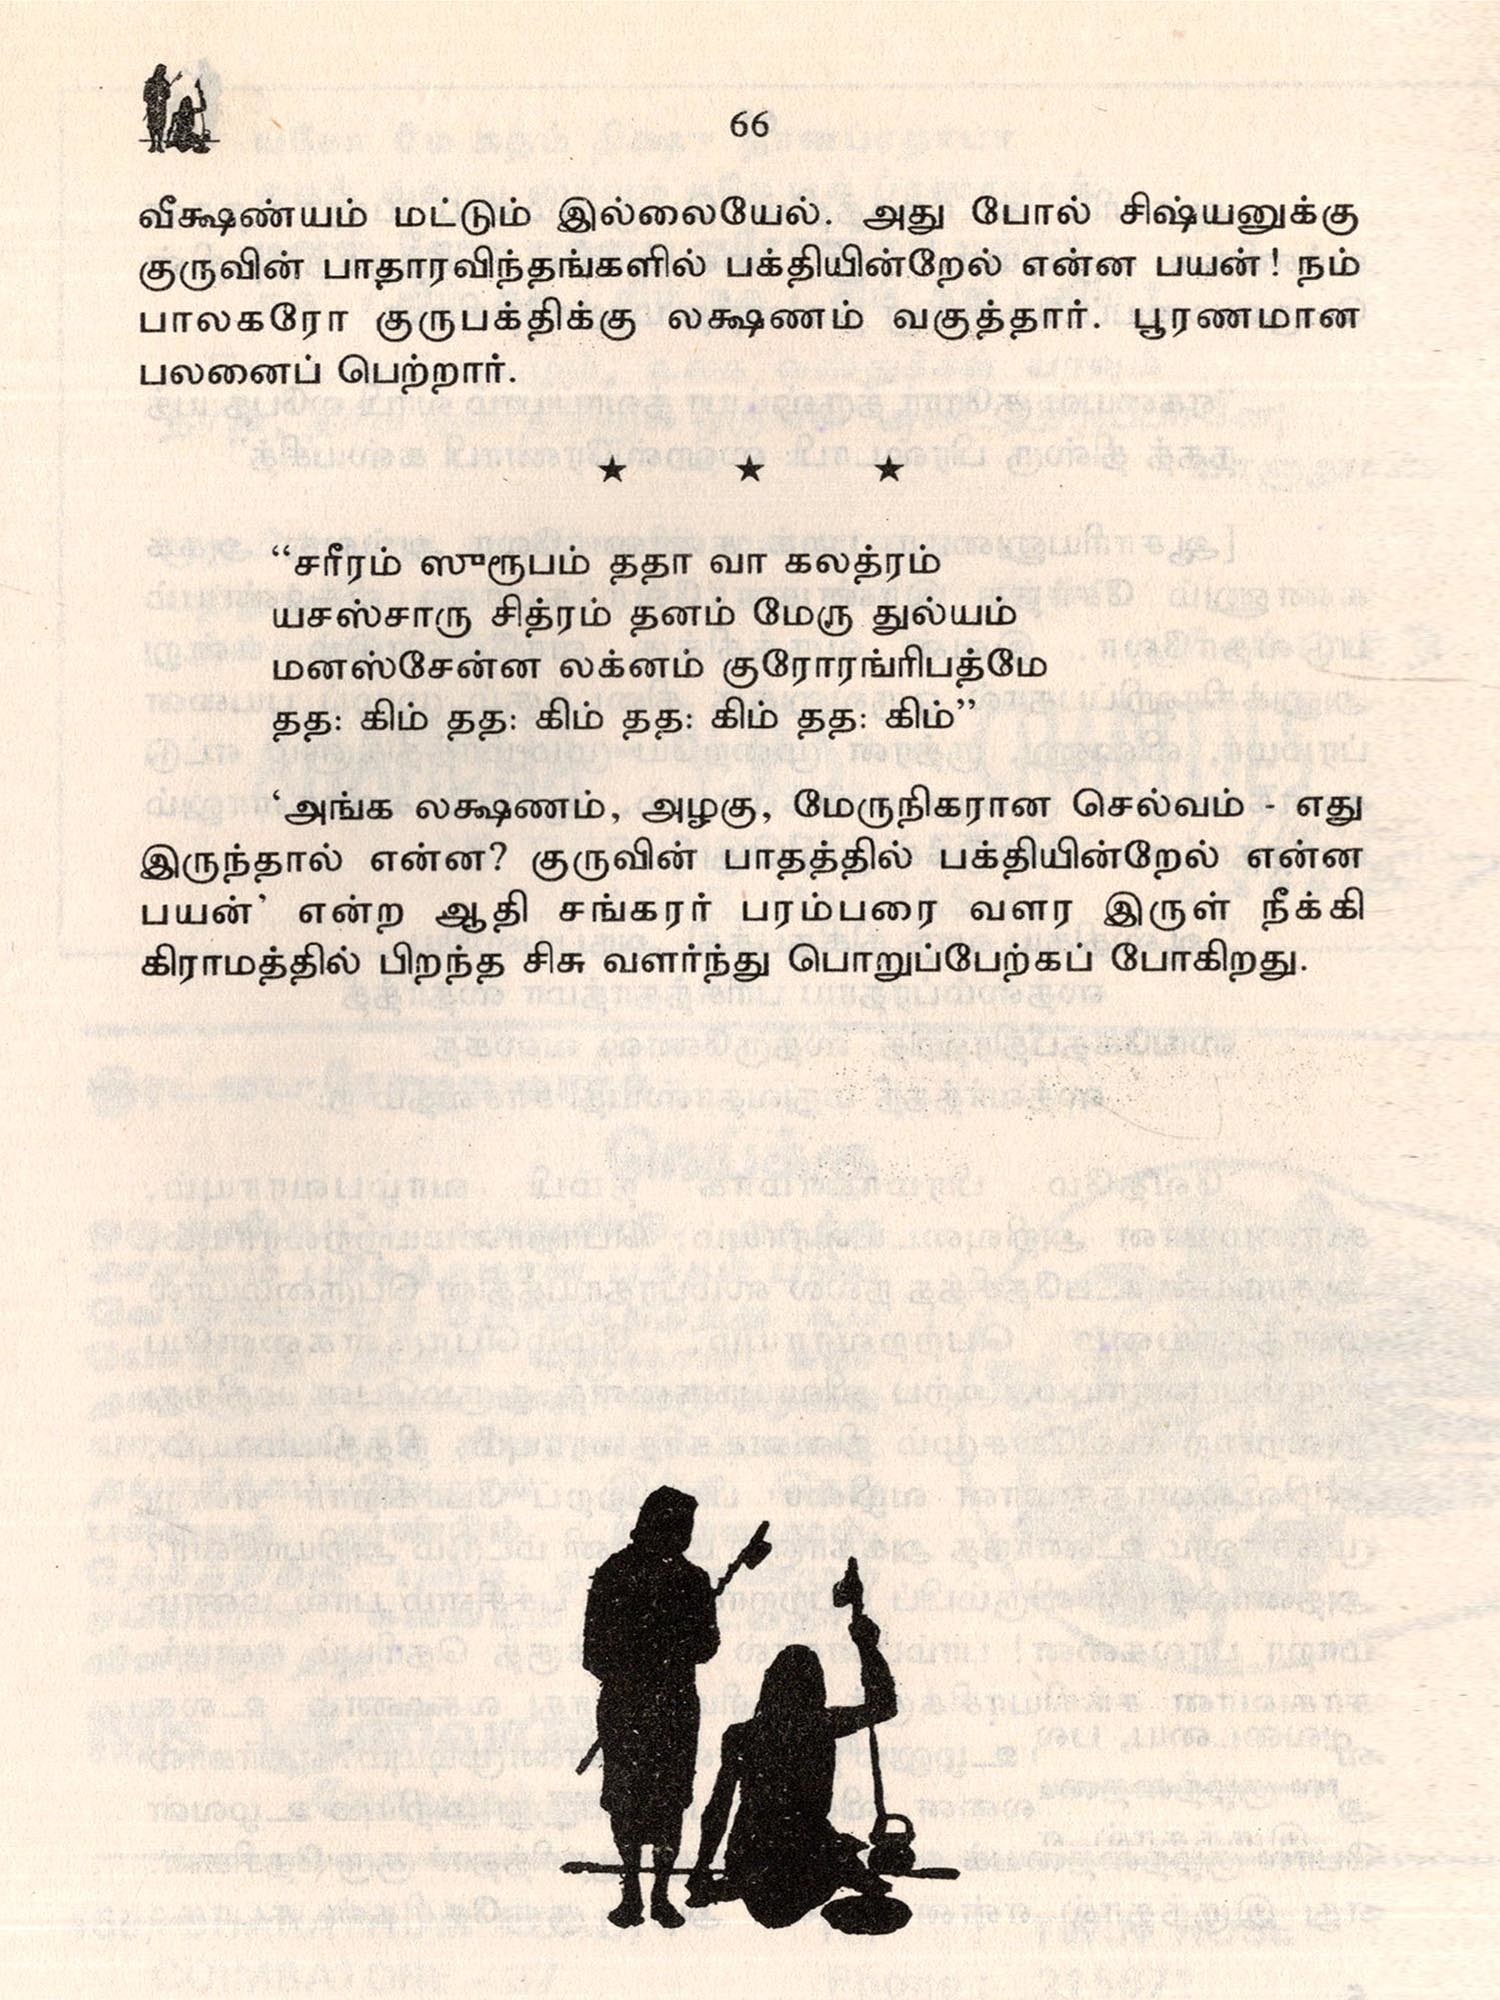 66
வீக்ஷண்யம் மட்டும் இல்லையேல். அது போல் சிஷ்யனுக்கு
குருவின் பாதாரவிந்தங்களில் பக்தியின்றேல் என்ன பயன்! நம்
பாலகரோ குருபக்திக்கு லக்ஷணம் வகுத்தார். பூரணமான
பலனைப் பெற்றார்.
★ ★ ★
“சரீரம் ஸுரூபம் ததா வா கலத்ரம்
யசஸ்சாரு சித்ரம் தனம் மேரு துல்யம்
மனஸ்சேன்ன லக்னம் குரோரங்ரிபத்மே
தத: கிம் தத: கிம் தத: கிம் தத: கிம்”
‘அங்க லக்ஷணம், அழகு, மேருநிகரான செல்வம் - எது
இருந்தால் என்ன? குருவின் பாதத்தில் பக்தியின்றேல் என்ன
பயன்’ என்ற ஆதி சங்கரர் பரம்பரை வளர இருள் நீக்கி
கிராமத்தில் பிறந்த சிசு வளர்ந்து பொறுப்பேற்கப் போகிறது.